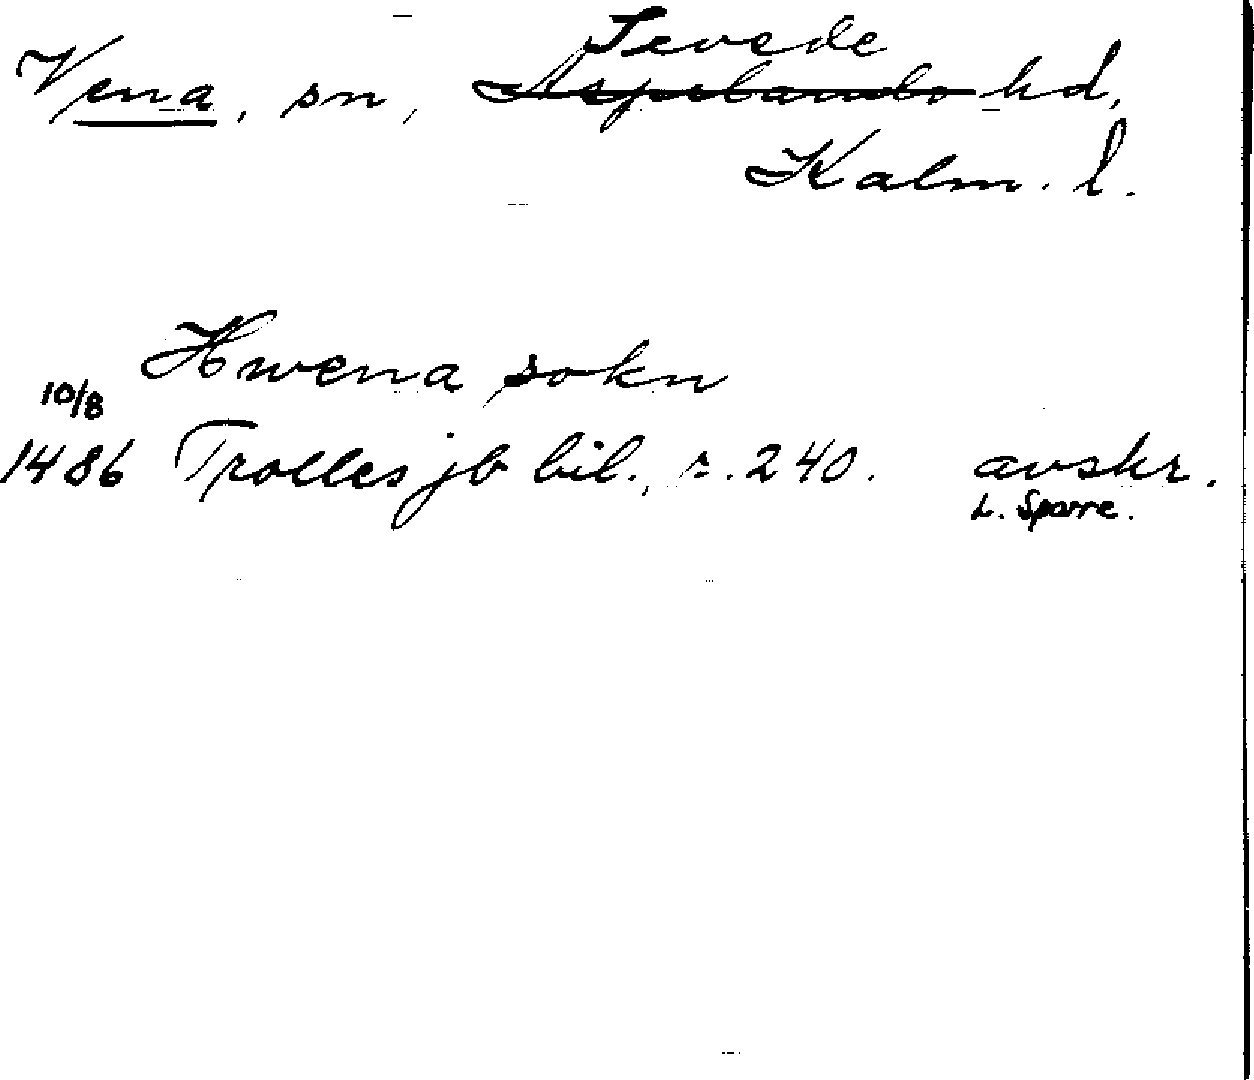 Sevede
Vena, sn, Aspelands hd,
Kalm. l.
Hwena sokn
10/8
1486 Trolles jb bil., s. 240. avskr.
L. Sparre.